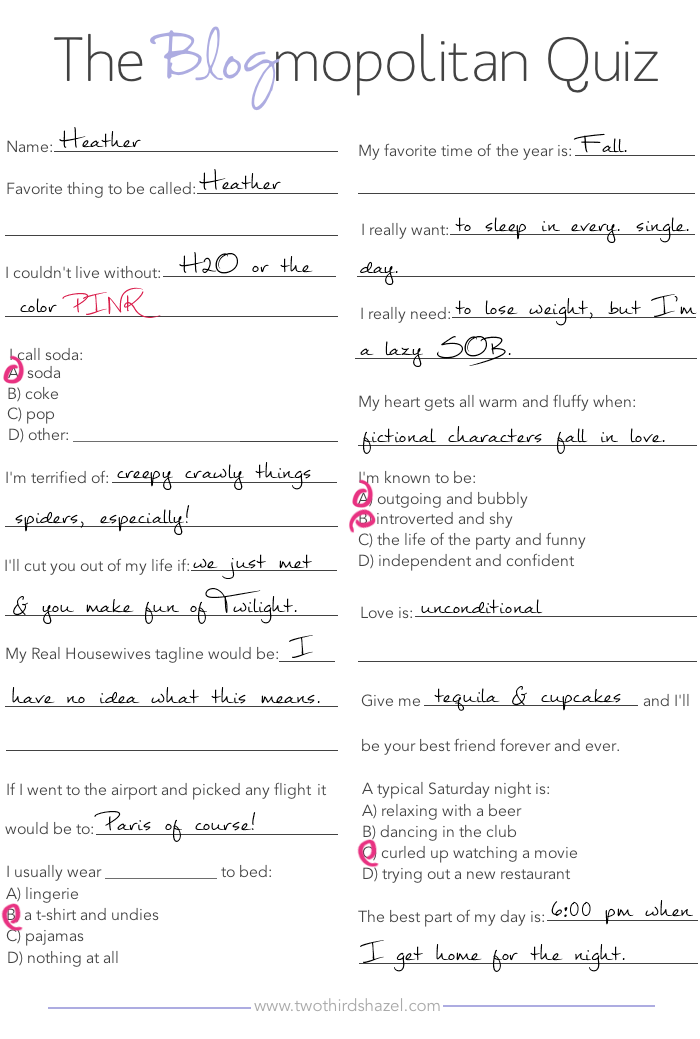 The Blogmopolitan Quiz
Name: Heather
Favorite thing to be called: Heather
I couldn't live without: H2O or the
color PINK
I call soda:
A) soda
B) coke
C) pop
D) other:
I'm terrified of: creepy crawly things
spiders, especially!
I'll cut you out of my life if: we just met
& you make fun of Twilight.
My Real Housewives tagline would be: I
have no idea what this means.
If I went to the airport and picked any flight it
would be to: Paris of course!
I usually wear ____________ to bed:
A) lingerie
B) a t-shirt and undies
C) pajamas
D) nothing at all
My favorite time of the year is: Fall.
I really want: to sleep in every. single.
day.
I really need: to lose weight, but I'm
a lazy SOB.
My heart gets all warm and fluffy when:
fictional characters fall in love.
I'm known to be:
A) outgoing and bubbly
B) introverted and shy
C) the life of the party and funny
D) independent and confident
Love is: unconditional
Give me tequila & cupcakes and I'll
be your best friend forever and ever.
A typical Saturday night is:
A) relaxing with a beer
B) dancing in the club
C) curled up watching a movie
D) trying out a new restaurant
The best part of my day is: 6:00 pm when
I get home for the night.
www.twothirdshazel.com